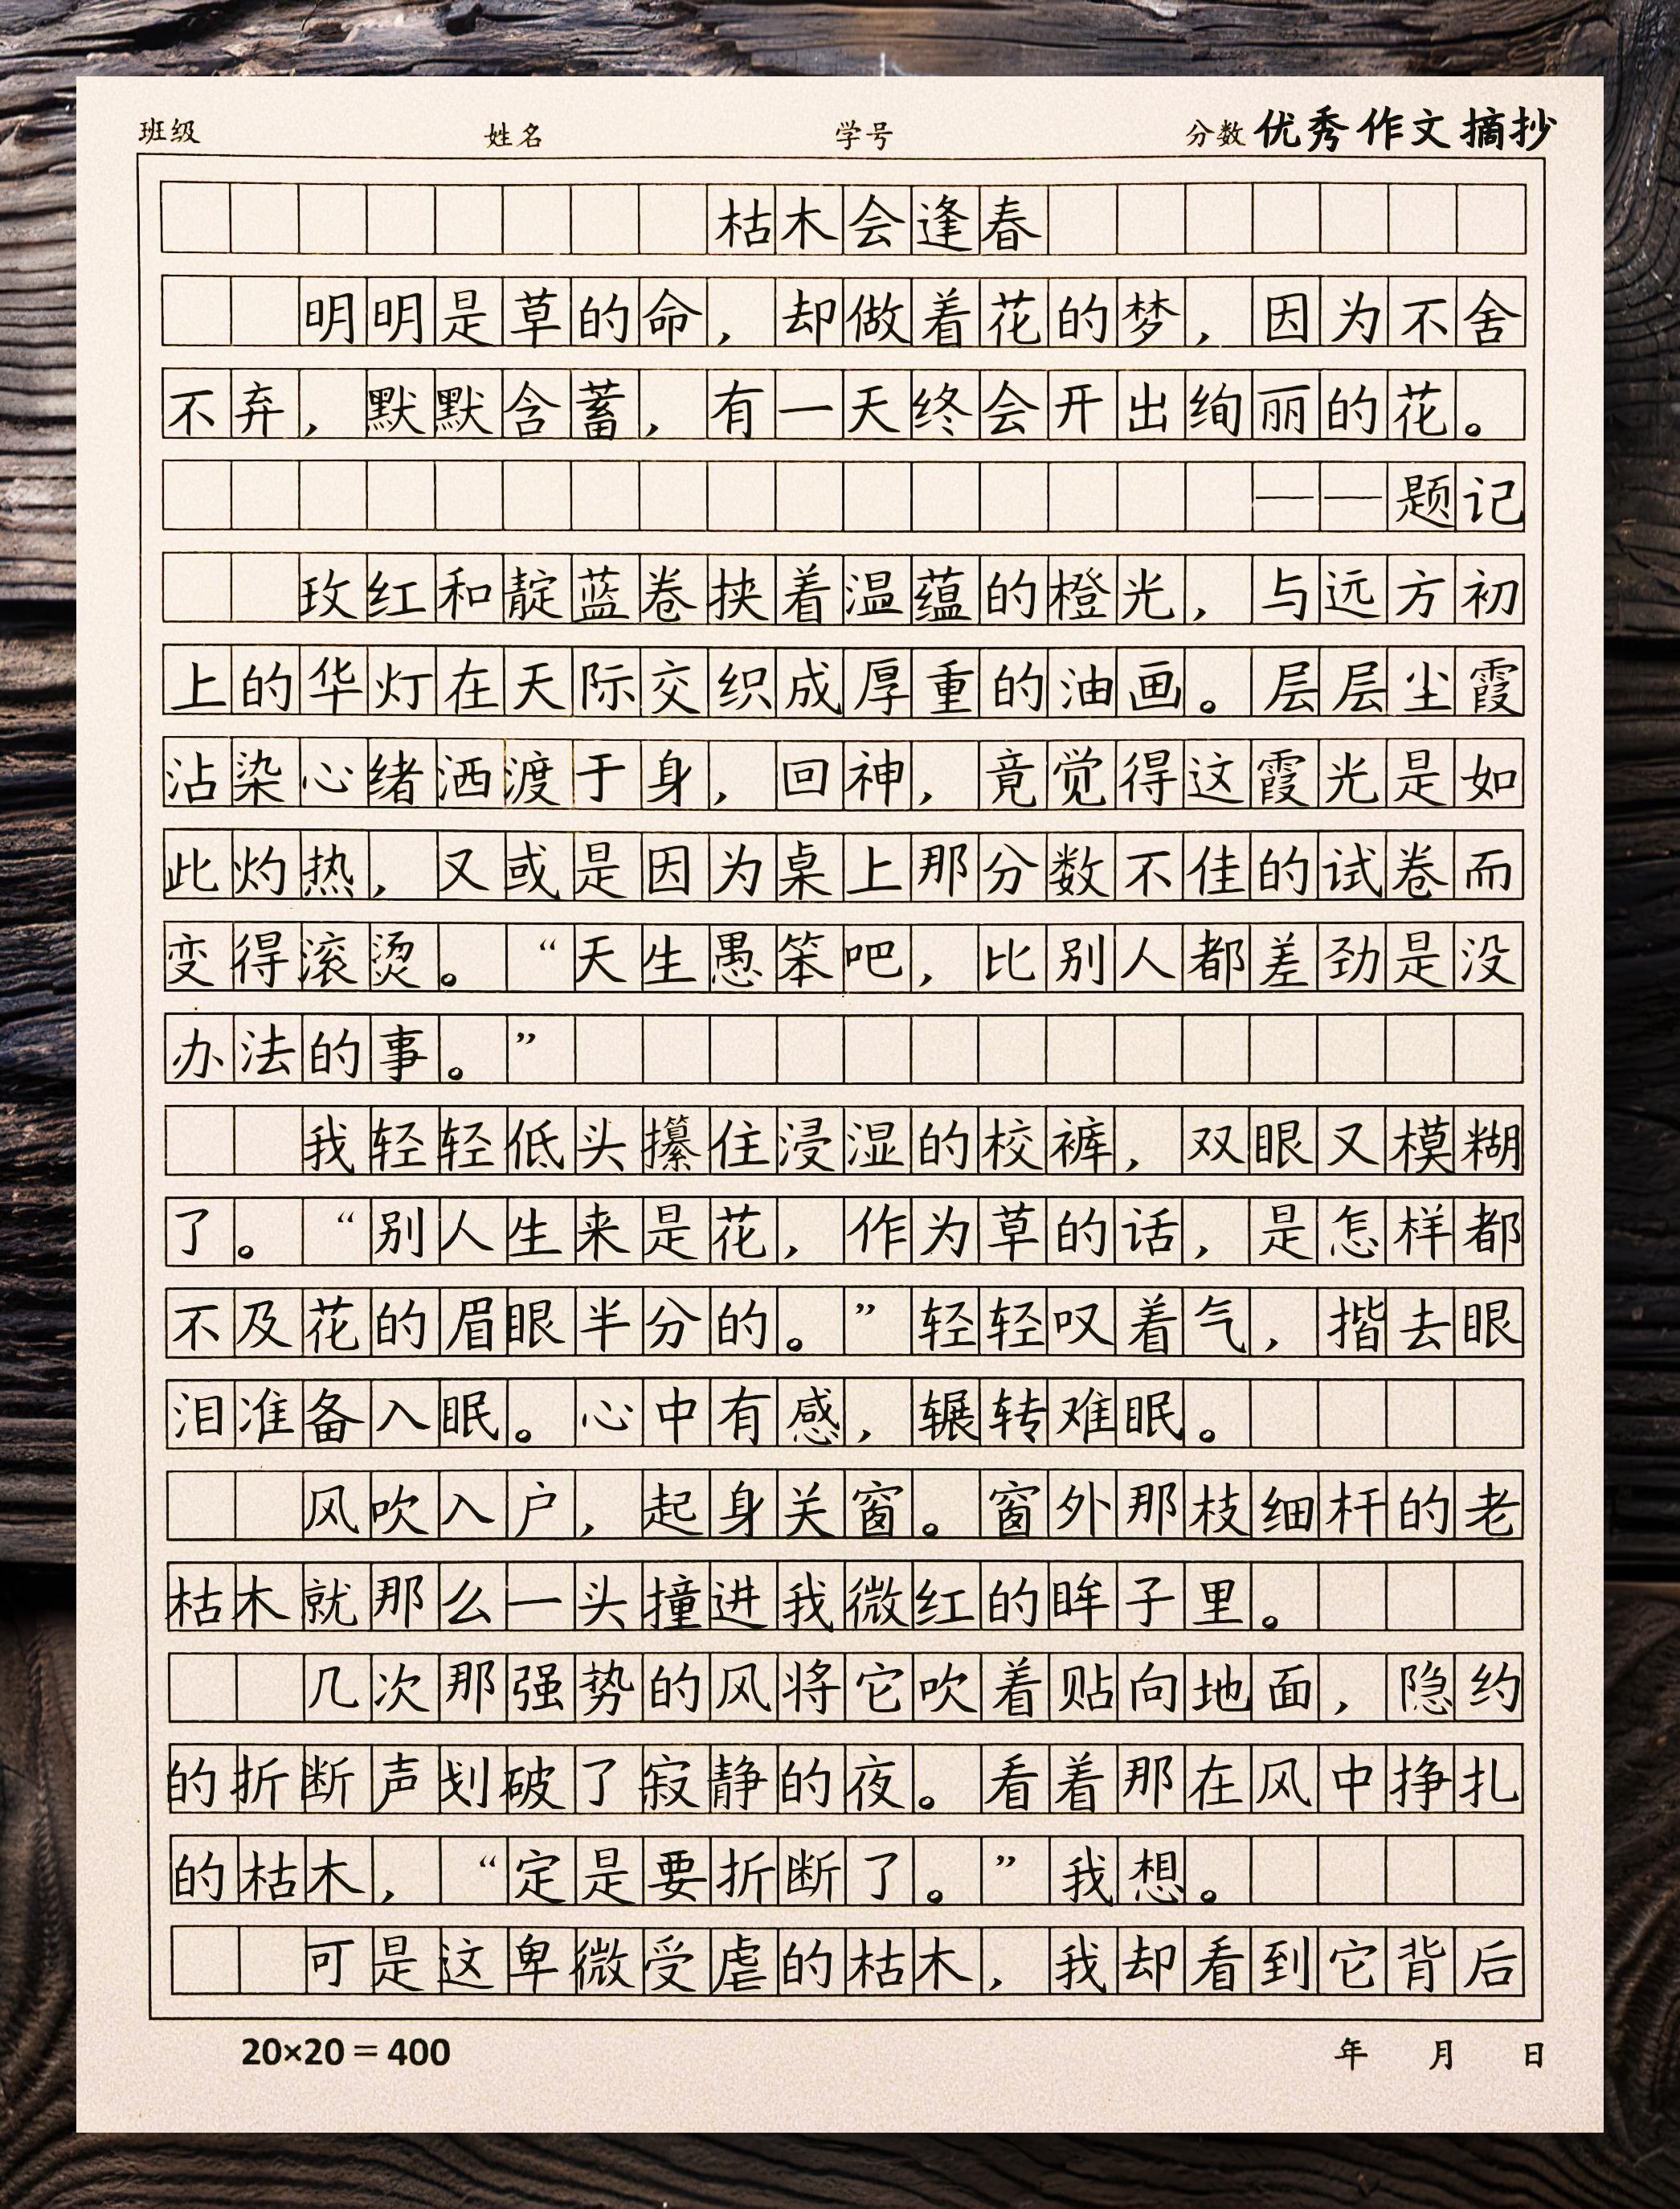 班级 姓名 学号 分数 优秀作文摘抄
枯木会逢春
明明是草的命，却做着花的梦，因为不舍
不弃，默默含蓄，有一天终会开出绚丽的花。
——题记
玫红和靛蓝卷挟着温蕴的橙光，与远方初
上的华灯在天际交织成厚重的油画。层层尘霞
沾染心绪洒渡于身，回神，竟觉得这霞光是如
此灼热，又或是因为桌上那分数不佳的试卷而
变得滚烫。“天生愚笨吧，比别人都差劲是没
办法的事。”
我轻轻低头攥住浸湿的校裤，双眼又模糊
了。“别人生来是花，作为草的话，是怎样都
不及花的眉眼半分的。”轻轻叹着气，揩去眼
泪准备入眠。心中有感，辗转难眠。
风吹入户，起身关窗。窗外那枝细杆的老
枯木就那么一头撞进我微红的眸子里。
几次那强势的风将它吹着贴向地面，隐约
的折断声划破了寂静的夜。看着那在风中挣扎
的枯木，“定是要折断了。”我想。
可是这卑微受虐的枯木，我却看到它背后
20×20=400 年 月 日